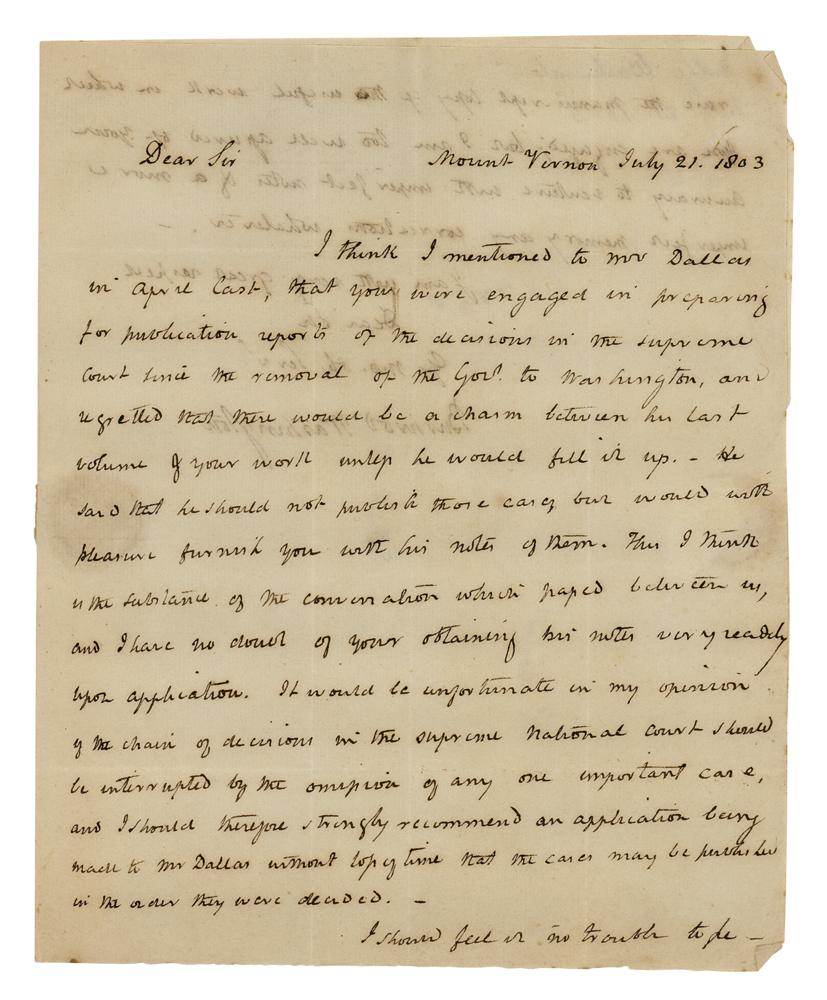 Dear Sir Mount Vernon July 21. 1803
I think I mentioned to Mr Dallas
in April last, that you were engaged in preparing
for publication reports of the decisions in the supreme
court since the removal of the Govt. to Washington, and
regretted that there would be a chasm between his last
volume & your work unless he would fill it up. - He
said that he should not publish those cases but would with
pleasure furnish you with his notes of them. This I think
is the substance of the conversation which passed between us,
and I have no doubt of your obtaining his notes very readily
upon application. It would be unfortunate in my opinion
if the chain of decisions in the supreme national court should
be interrupted by the omission of any one important case,
and I should therefore strongly recommend an application being
made to Mr Dallas without loss of time that the cases may be published
in the order they were decided. -
I should feel it no trouble to pe -